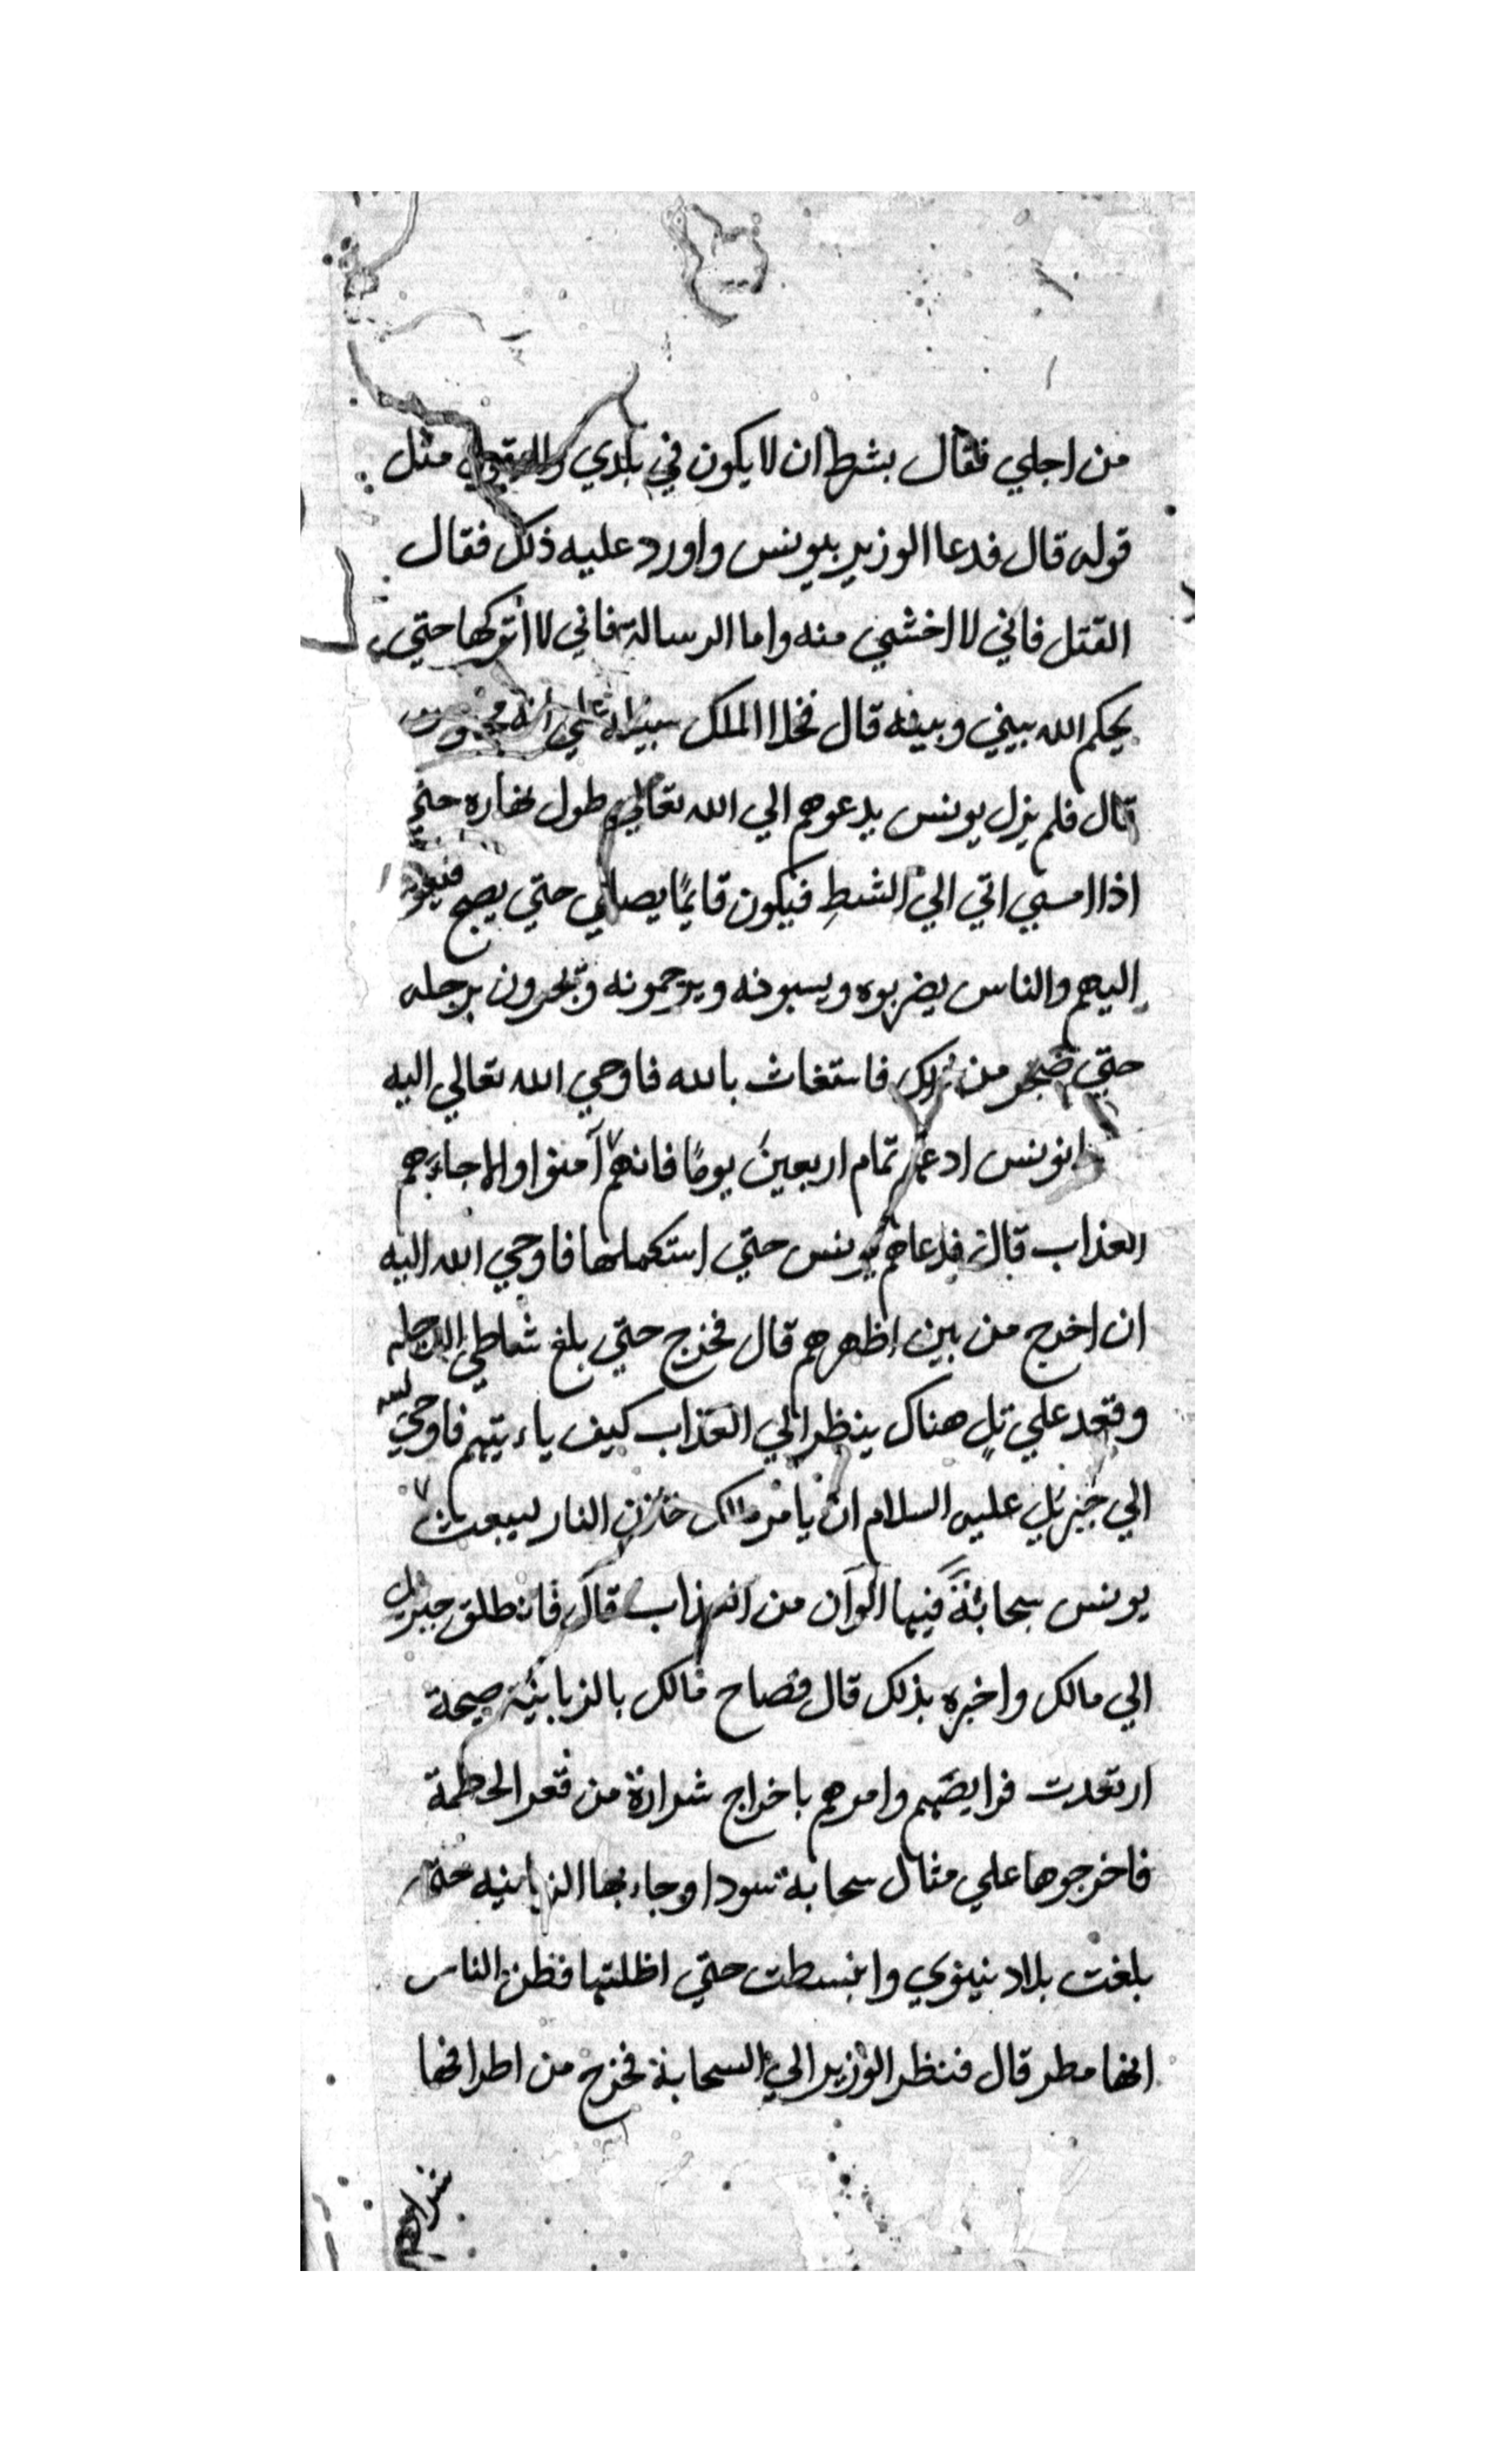 من اجلي فقال بشرط ان لا يكون في بلدي ولا يقول مثل
قوله قال فدعا الوزير بيونس واورد عليه ذلك فقال
القتل فاني لا اخشي منه واما الرسالة فاني لا أتركها حتي
يحكم الله بيني وبينه قال فخلا الملك سبيله علي انه
قال فلم يزل يونس يدعوهم الي الله تعالي طول نهاره حتي
اذا امسي اتي الي الشط فيكون قايمًا يصلي حتي يصبح فيعود
اليهم والناس يضربوه ويسبونه ويرجمونه ويجرون برجله
حتي ضجر من ذلك فاستغاث بالله فاوحي الله تعالي اليه
يونس ادعهم تمام اربعين يومًا فانهم آمنوا والا جاءهم
العذاب قال فدعاهم يونس حتي استكملها فاوحي الله اليه
ان اخرج من بين اظهرهم قال فخرج حتي بلغ شاطي الدجله
وقعد علي تلٍ هناك ينظر الي العذاب كيف ياءتيهم فاوحي الله
الي جبريل عليه السلام ان يامر مالك خازن النار ليبعث
يونس سحابةً فيها الوان من العذاب قال فانطلق جبريل
الي مالك واخبره بذلك قال فصاح مالك بالزبانية صيحة
ارتعدت فرايضهم وامرهم باخراج شرارة من قعر الحطمة
فاخرجوها علي مثال سحابة سودا وجاء بها الزبانيه حتي
بلغت بلاد نينوي وانبسطت حتي اظلتها فظن الناس
انها مطر قال فنظر الوزير الي السحابة فخرج من اطرافها